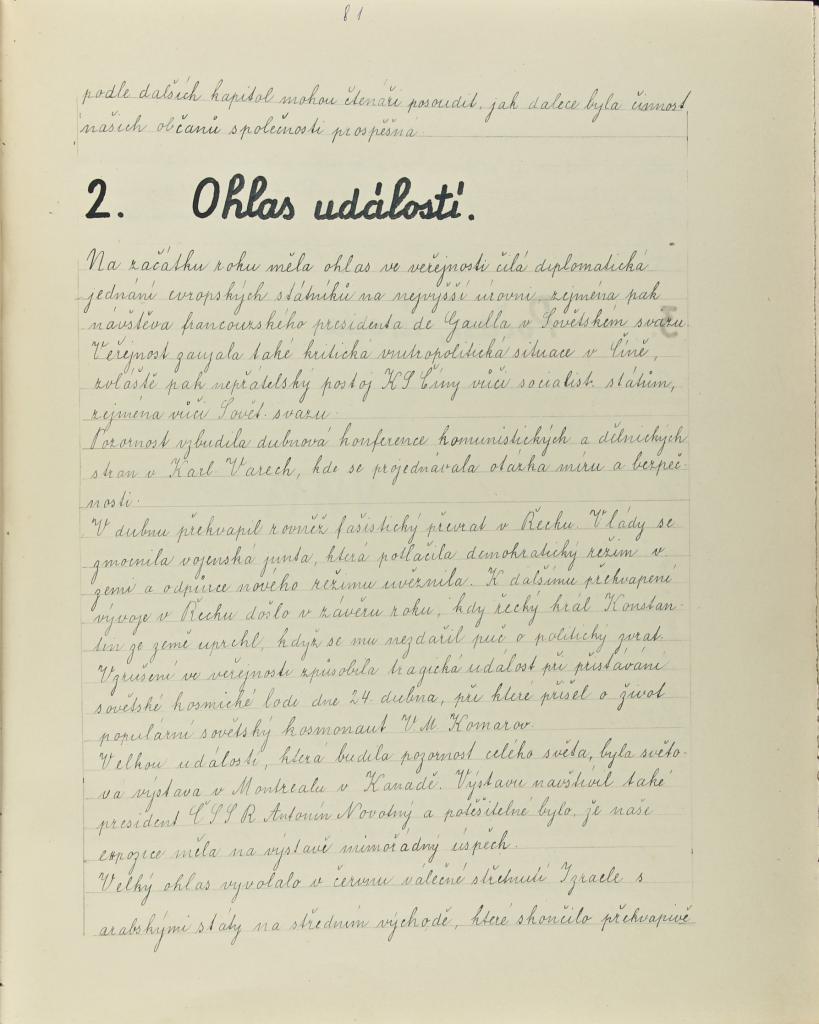 81
podle dalších kapitol mohou čtenáři posoudit, jak dalece byla činnost
našich občanů společnosti prospěšná.
2. Ohlas událostí.
Na začátku roku měla ohlas ve veřejnosti čilá diplomatická
jednání evropských státníků na nejvyšší úrovni, zejména pak
návštěva francouzského presidenta de Gaulla v Sovětském svazu.
Veřejnost zaujala také kritická vnitropolitická situace v Číně,
zvláště pak nepřátelský postoj KS Číny vůči socialist. státům,
zejména vůči Sovět. svazu.
Pozornost vzbudila dubnová konference komunistických a dělnických
stran v Karl. Varech, kde se projednávala otázka míru a bezpeč-
nosti.
V dubnu překvapil rovněž fašistický převrat v Řecku. Vlády se
zmocnila vojenská junta, která potlačila demokratický režim v
zemi a odpůrce nového režimu uvěznila. K dalšímu překvapení
vývoje v Řecku došlo v závěru roku, kdy řecký král Konstan-
tin ze země uprchl, když se mu nezdařil puč o politický zvrat.
Vzrušení ve veřejnosti způsobila tragická událost při přistávání
sovětské kosmické lodi dne 24. dubna, při které přišel o život
populární sovětský kosmonaut V. M. Komarov.
Velkou událostí, která budila pozornost celého světa, byla světo-
vá výstava v Montrealu v Kanadě. Výstavu navštívil také
president ČSSR Antonín Novotný a potěšitelné bylo, že naše
expozice měla na výstavě mimořádný úspěch.
Velký ohlas vyvolalo v červnu válečné střetnutí Izraele s
arabskými státy na středním východě, které skončilo překvapivě